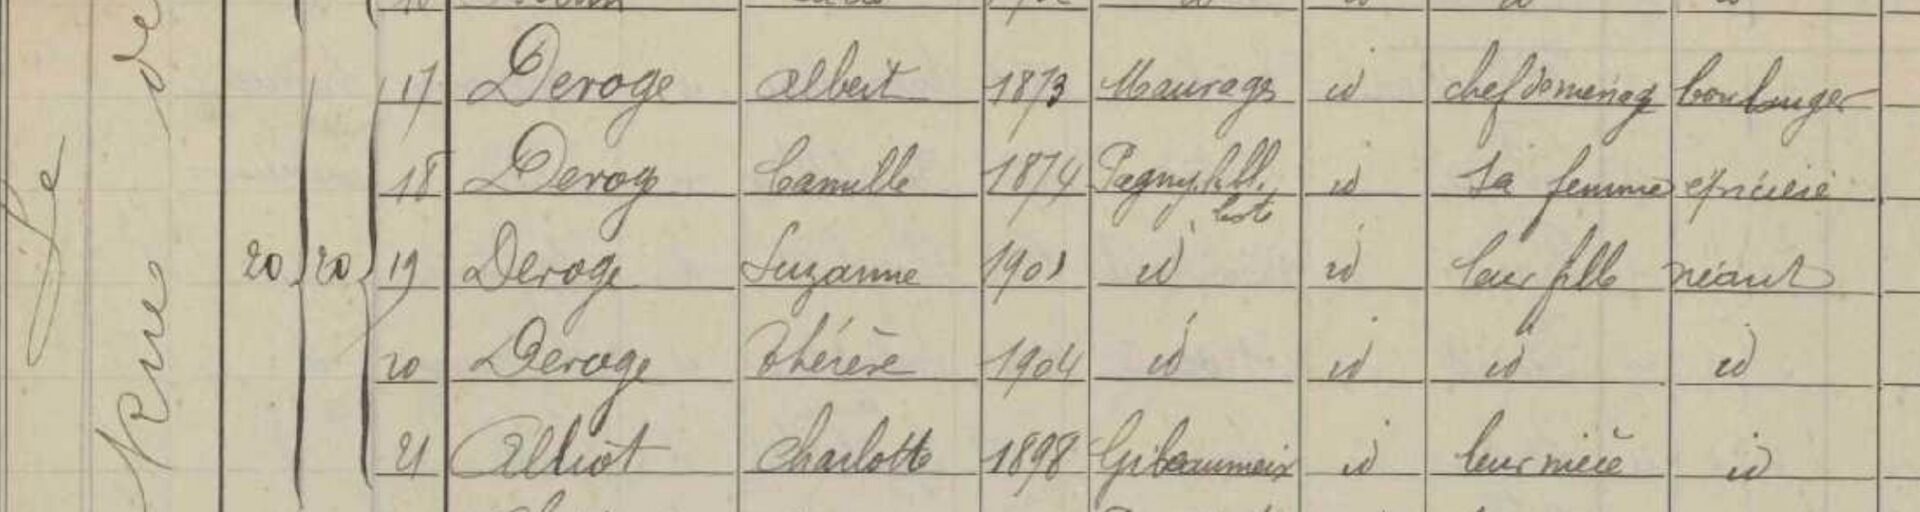 Le
Rue de
17 Deroge Albert 1873 Mauvages id chef de ménage boulanger
18 Deroge Camille 1874 Pagny la Bl. Côte id sa femme épicière
20 20 19 Deroge Suzanne 1901 id id leur fille néant
20 Deroge Thérèse 1904 id id id id
21 Alliot Charlotte 1898 Gibeaumeix id leur nièce id